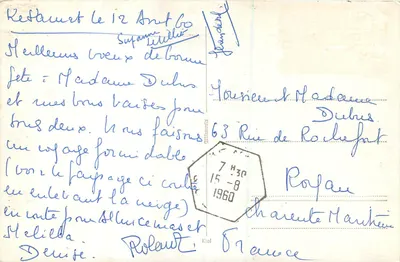 Ketama le 12 Août 60
Meilleurs voeux de bonne
fête à Madame Dubus
et mes bons baisers pour
tous deux. Nous faisons
un voyage formidable
(voir le paysage ci contre
en enlevant la neige)
en route pour Alhucemas et
Melilla.
Denise. Roland.
Monsieur et Madame
Dubus
63 Rue de Rochefort
Royan
Charente Maritime
France
7 H30
15-8
1960